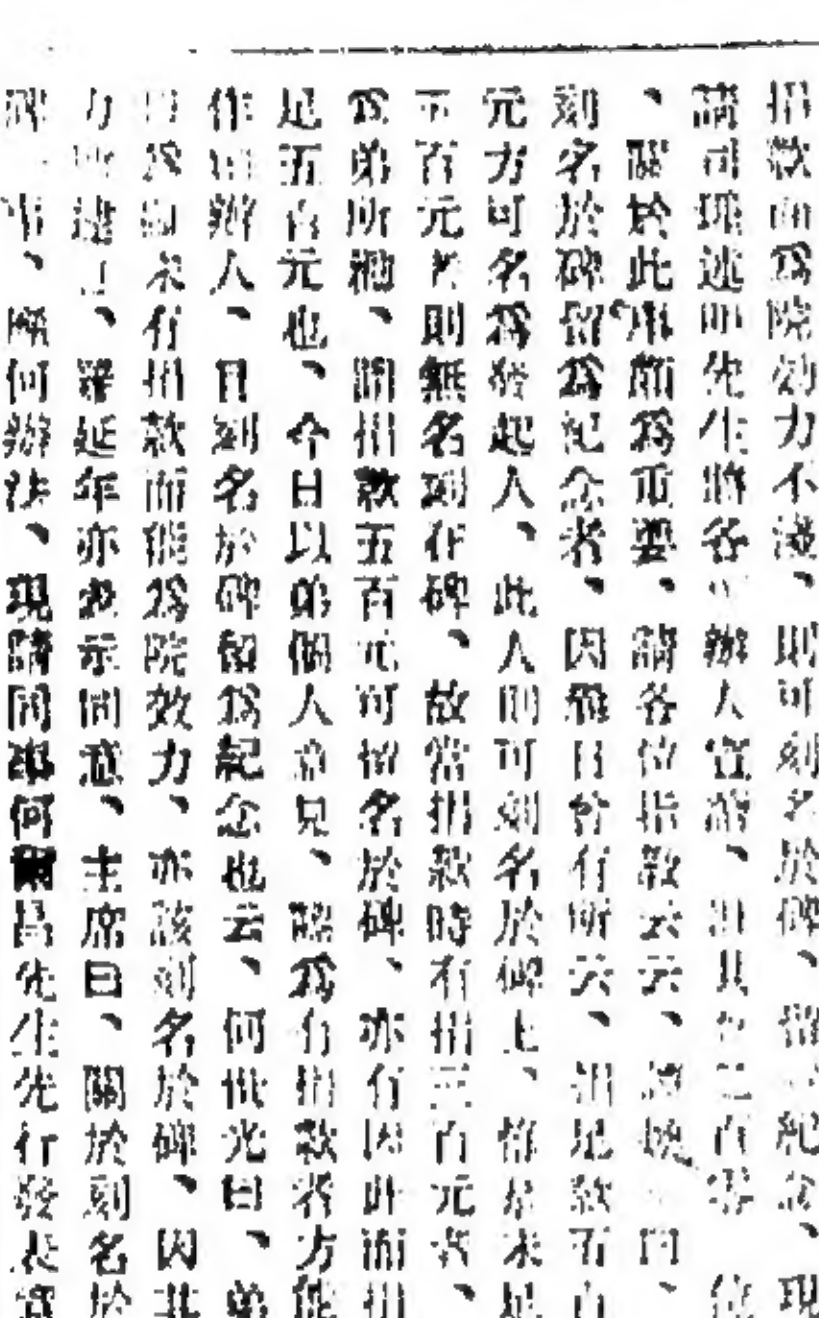 捐款而爲院効力不淺、則可刻名於碑、留 紀念、現
請司理述明先生將各 辦人宣讀、 其 二百零 位
、關於此事頗爲重要、請各位指教云云、 曰、
刻名於碑留爲紀念者、因舊日會有所云、捐足款五百
元方可名爲發起人、此人則可刻名於碑上、惟是未足
五百元者則無名刻在碑、故當捐款時有捐三百元者、
爲弟所 、謂捐款五百元可留名於碑、亦有因此而捐
足五百元也、今日以弟個人意見、 爲有捐款者方能
作 辦人、 刻名於碑留爲紀念也云、何 光曰、弟
爲 未有捐款而能爲院效力、亦該刻名於碑、因其
力 建 、 延年亦表示同意、主席曰、關於刻名於
碑 事、 何辦法、現請同事何爾昌先生先行發表